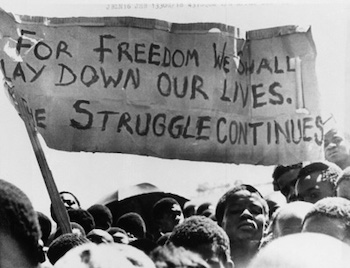 FOR FREEDOM WE SHALL
LAY DOWN OUR LIVES.
THE STRUGGLE CONTINUES